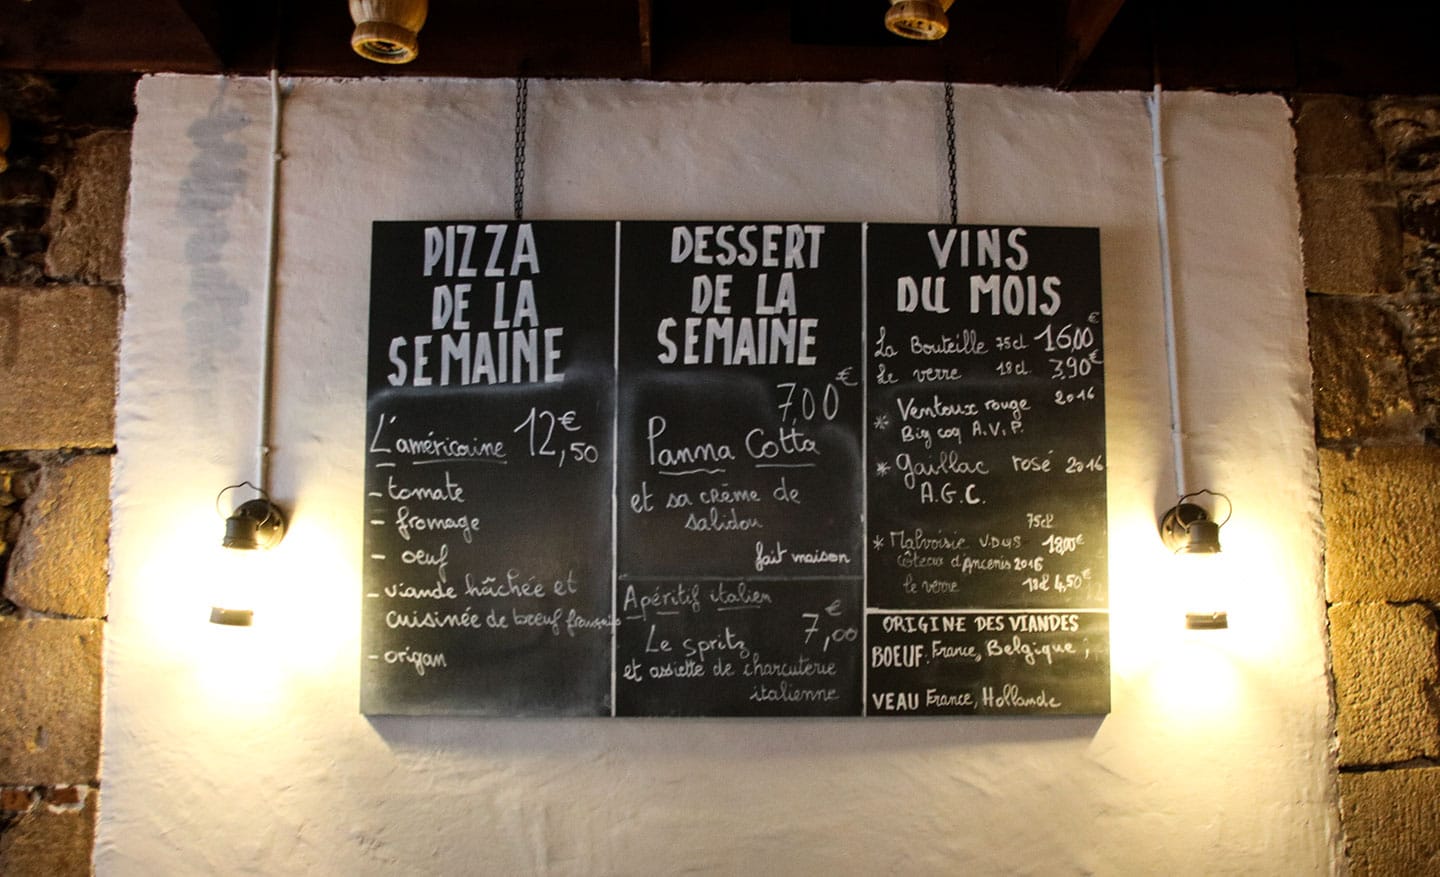 PIZZA
DE LA
SEMAINE
L'américaine 12,50€
- tomate
- fromage
- oeuf
- viande hâchée et
cuisinée de boeuf français
- origan
DESSERT
DE LA
SEMAINE
7,00€
Panna Cotta
et sa crème de
salidou
fait maison
Apéritif italien
7,00€
Le spritz
et assiette de charcuterie
italienne
VINS
DU MOIS
La Bouteille 75cl 16,00€
Le verre 18cl 3,90€
* Ventoux rouge 2016
Big coq A.V.P.
* Gaillac rosé 2016
A.G.C.
75cl
* Malvoisie V.D.Q.S 18,00€
Côteaux d'Ancenis 2016
le verre 18cl 4,50€
ORIGINE DES VIANDES
BOEUF: France, Belgique ;
VEAU France, Hollande